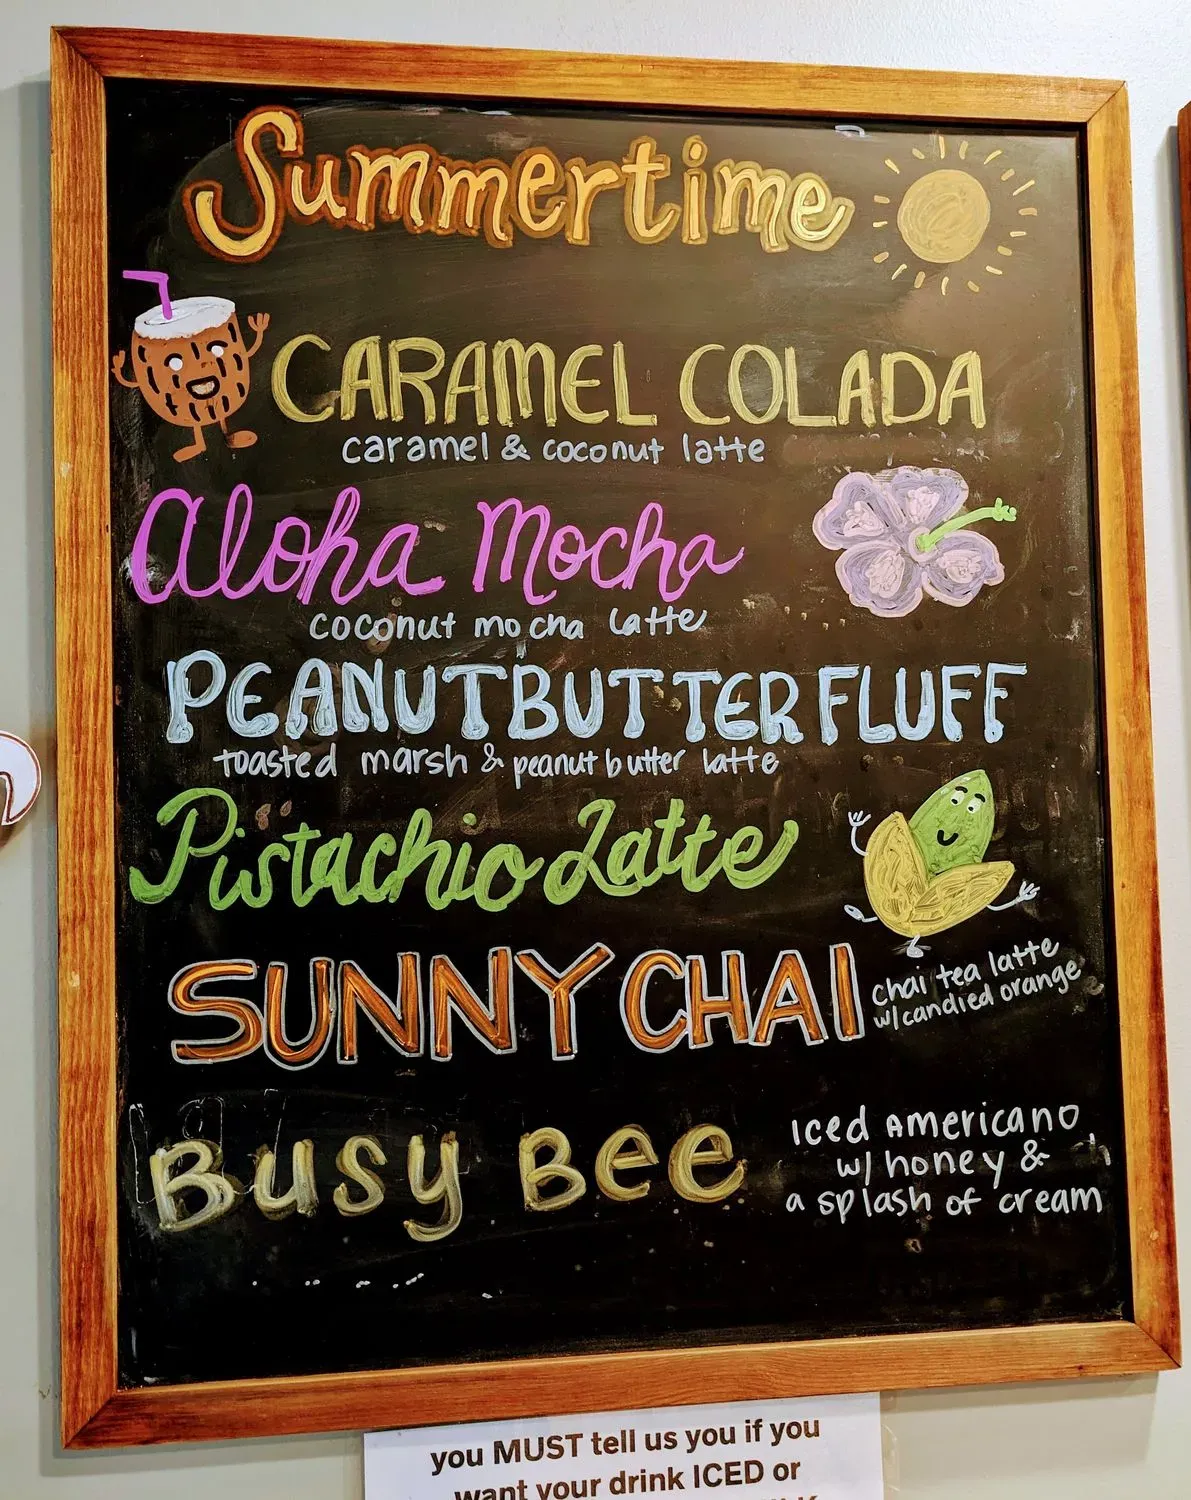 Summertime
CARAMEL COLADA
caramel & coconut latte
Aloha Mocha
coconut mocha latte
PEANUTBUTTER FLUFF
toasted marsh & peanut butter latte
Pistachio Latte
SUNNY CHAI
chai tea latte
w/candied orange
Busy Bee
Iced Americano
w/ honey &
a splash of cream
you MUST tell us you if you
want your drink ICED or